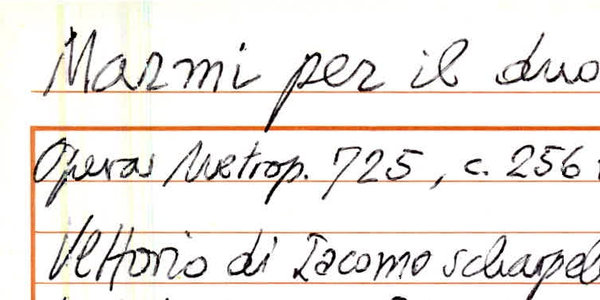 Marmi per il duo
Opera Metrop. 725, c. 256
Vettorio di Iacomo scharpel